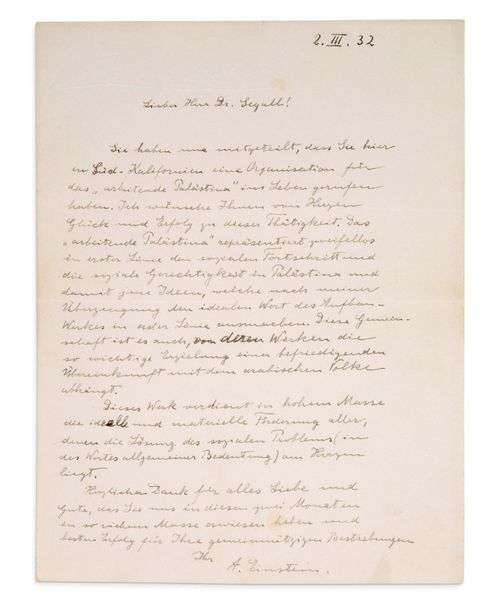 2. III. 32
Lieber Herr Dr. Segall!
Sie haben uns mitgeteilt, dass Sie hier
in Süd-Kalifornien eine Organisation für
das „arbeitende Palästina" ins Leben gerufen
haben. Ich wünsche Ihnen von Herzen
Glück und Erfolg zu dieser Thätigkeit. Das
„arbeitende Palästina" repräsentiert zweifellos
in erster Linie den sozialen Fortschritt und
die soziale Gerechtigkeit in Palästina und
damit jene Ideen, welche nach meiner
Überzeugung den idealen Wert des Aufbau-
Werkes in erster Linie ausmachen. Diese Gemein-
schaft ist es auch, von deren Wirken die
so wichtige Erzielung einer befriedigenden
Übereinkunft mit dem arabischen Volke
abhängt.
Dieses Werk verdient in hohem Masse
die ideelle und materielle Förderung aller,
denen die Lösung des sozialen Problems (in
des Wortes allgemeiner Bedeutung) am Herzen
liegt.
Herzlichen Dank für alles Liebe und
Gute, das Sie uns in diesen zwei Monaten
in so reichem Masse erwiesen haben und
besten Erfolg für Ihre gemeinnützigen Bestrebungen
Ihr
A. Einstein.